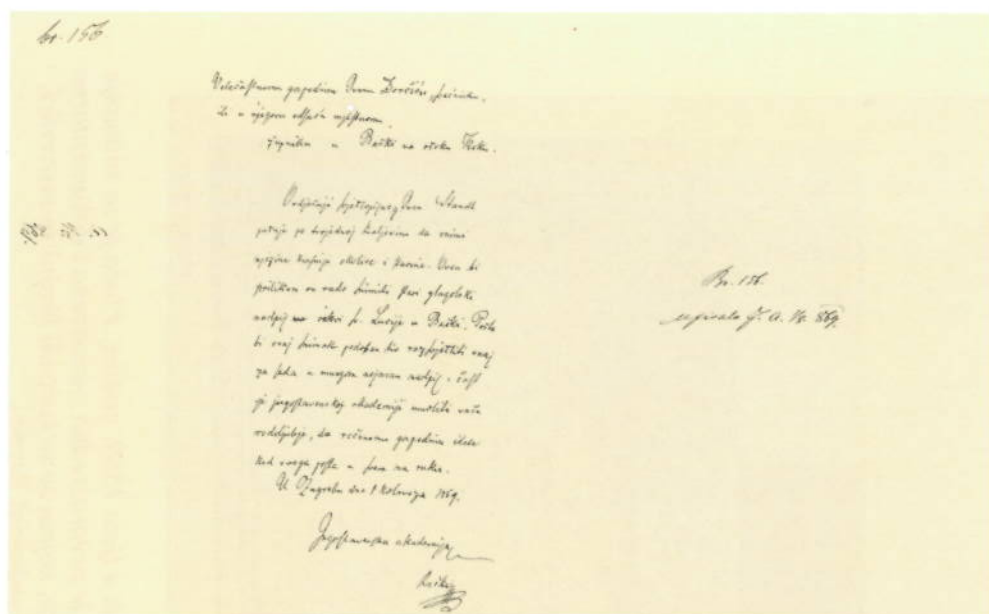 br. 156
Velečastnomu gospodinu Petru Dorčiću, 
ili u njegovu odsutnost
župniku u Baški na otoku Krku.
Ovdješnji svjetlopisac g. Standl
putuje po trojednoj kraljevini da snima
njezine krasnije okolice i starine. Ovom bi
prilikom on rado snimio stari glagolski
nadpis na crkvi sv. Lucije u Baški. Pošto
bi ovaj snimak podoban bio razsvjetliti ovaj
za sada u mnogom nejasan nadpis, čast
je jugoslavenskoj akademiji umoliti vaše
rodoljubje, da rečenomu gospodinu idete
kod ovoga posla u svem na ruku.
U Zagrebu dne 1 kolovoza 1869.
Jugoslavenska akademija
Rački
Br. 156.
J. A. 1/8 869.